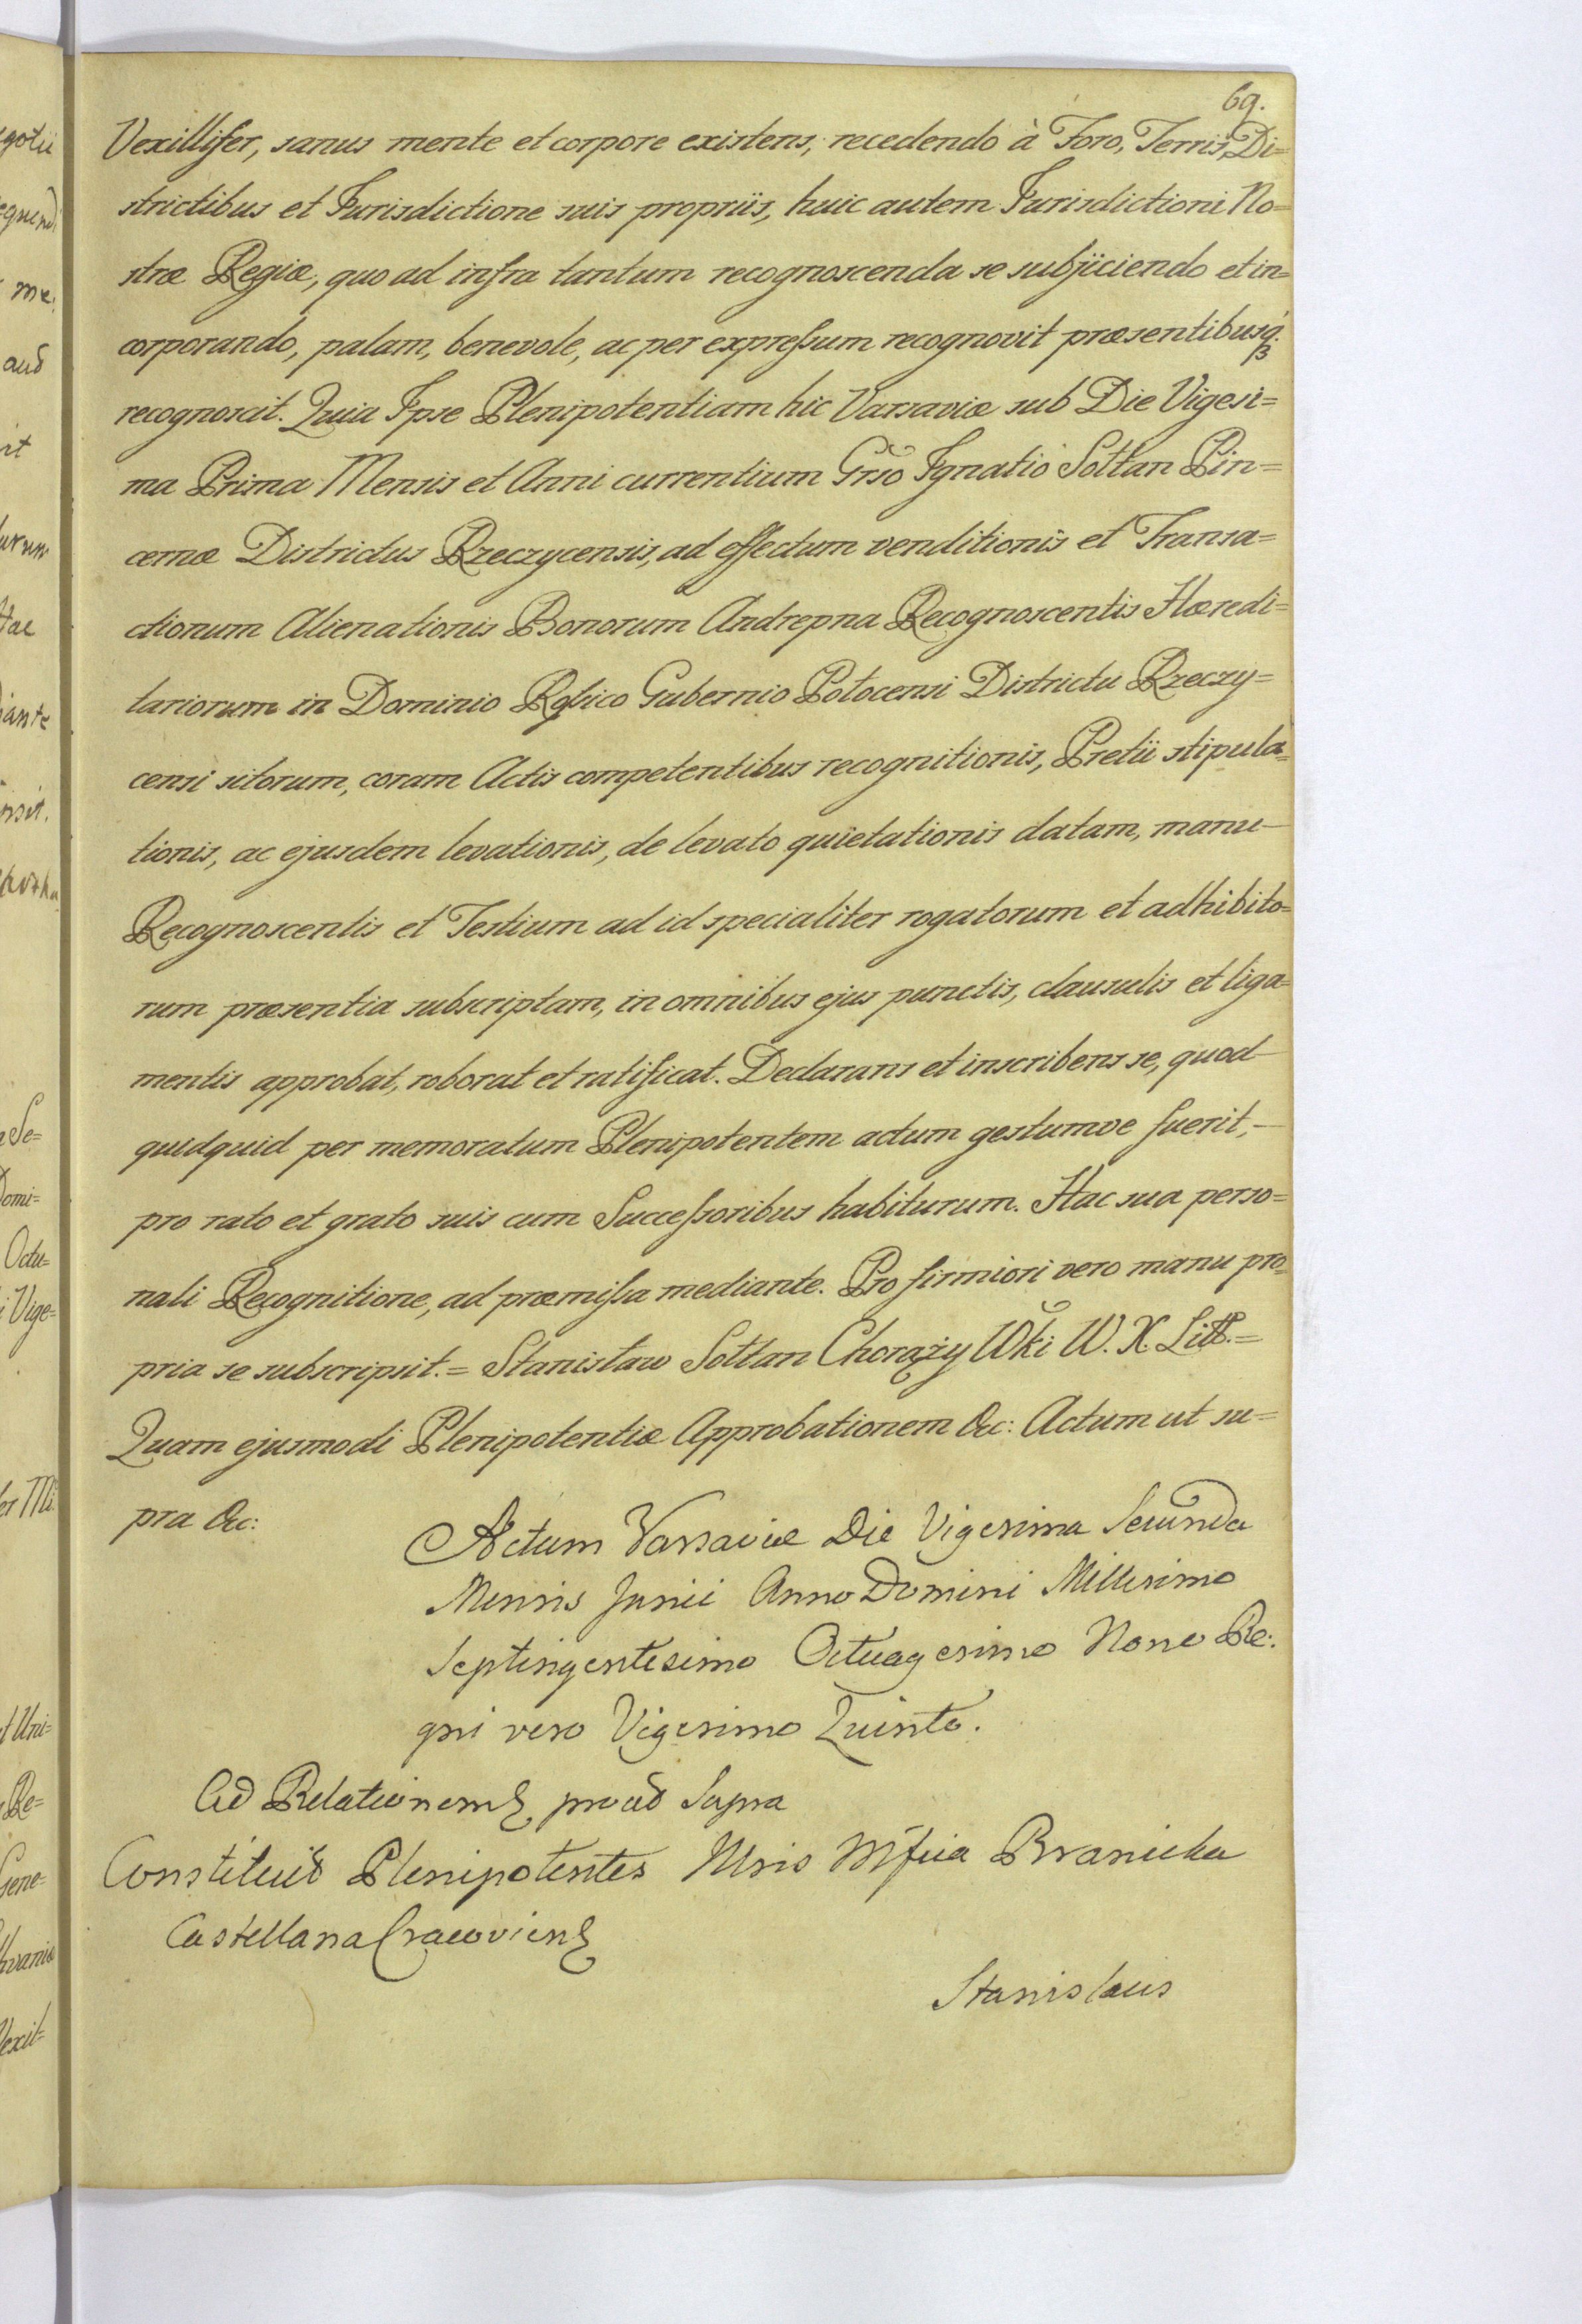 69.
Vexillifer, sanus mente et corpore existens, recedendo à Foro, Terris, Di=
strictibus et Jurisdictione suis propriis, huic autem Jurisdictioni No=
stræ Regiæ, quo ad infra tantum recognoscenda se subjiciendo et in=
corporando, palam, benevole, ac per expreſsum recognovit præsentibusq.
recognoscit. Quia Ipse Plenipotentiam hic Varsaviæ sub Die Vigesi=
ma Prima Mensis et Anni currentium Grso Ignatio Sołtan Pin=
cernæ Districtus Rzeczycensis, ad effectum venditionis et Transa=
ctionum Alienationis Bonorum Andrepna Recognoscentis Hæredi=
tariorum in Dominio Rossico Gubernio Potocensi Districtu Rzeczy=
censi sitorum, coram Actis competentibus recognitionis, Pretii stipula=
tionis, ac ejusdem levationis, de levato quietationis datam, manu
Recognoscentis et Testium ad id specialiter rogatorum et adhibito=
rum præsentia subscriptam, in omnibus ejus punctis, clausulis et liga=
mentis approbat, roborat et ratificat. Declarans et inscribens se, quod
quidquid per memoratum Plenipotentem actum gestumve fuerit,
pro rato et grato suis cum Succeſsoribus habiturum. Hac sua perso=
nali Recognitione, ad præmiſsa mediante. Pro firmiori vero manu pro=
pria se subscripsit. = Stanisław Sołtan Chorąży Wki W. X. Litt. =
Quam ejusmodi Plenipotentiæ Approbationem &c: Actum ut su=
pra &c:
Actum Varsaviæ Die Vigesima Secunda
Mensis Junii Anno Domini Millesimo
Septingentesimo Octuagesimo Nono Re:
gni vero Vigesimo Quinto.
Ad Relationem prout Supra
Constituit Plenipotentes Mris Mfica Branicka
Castellana Cracovien
Stanislaus